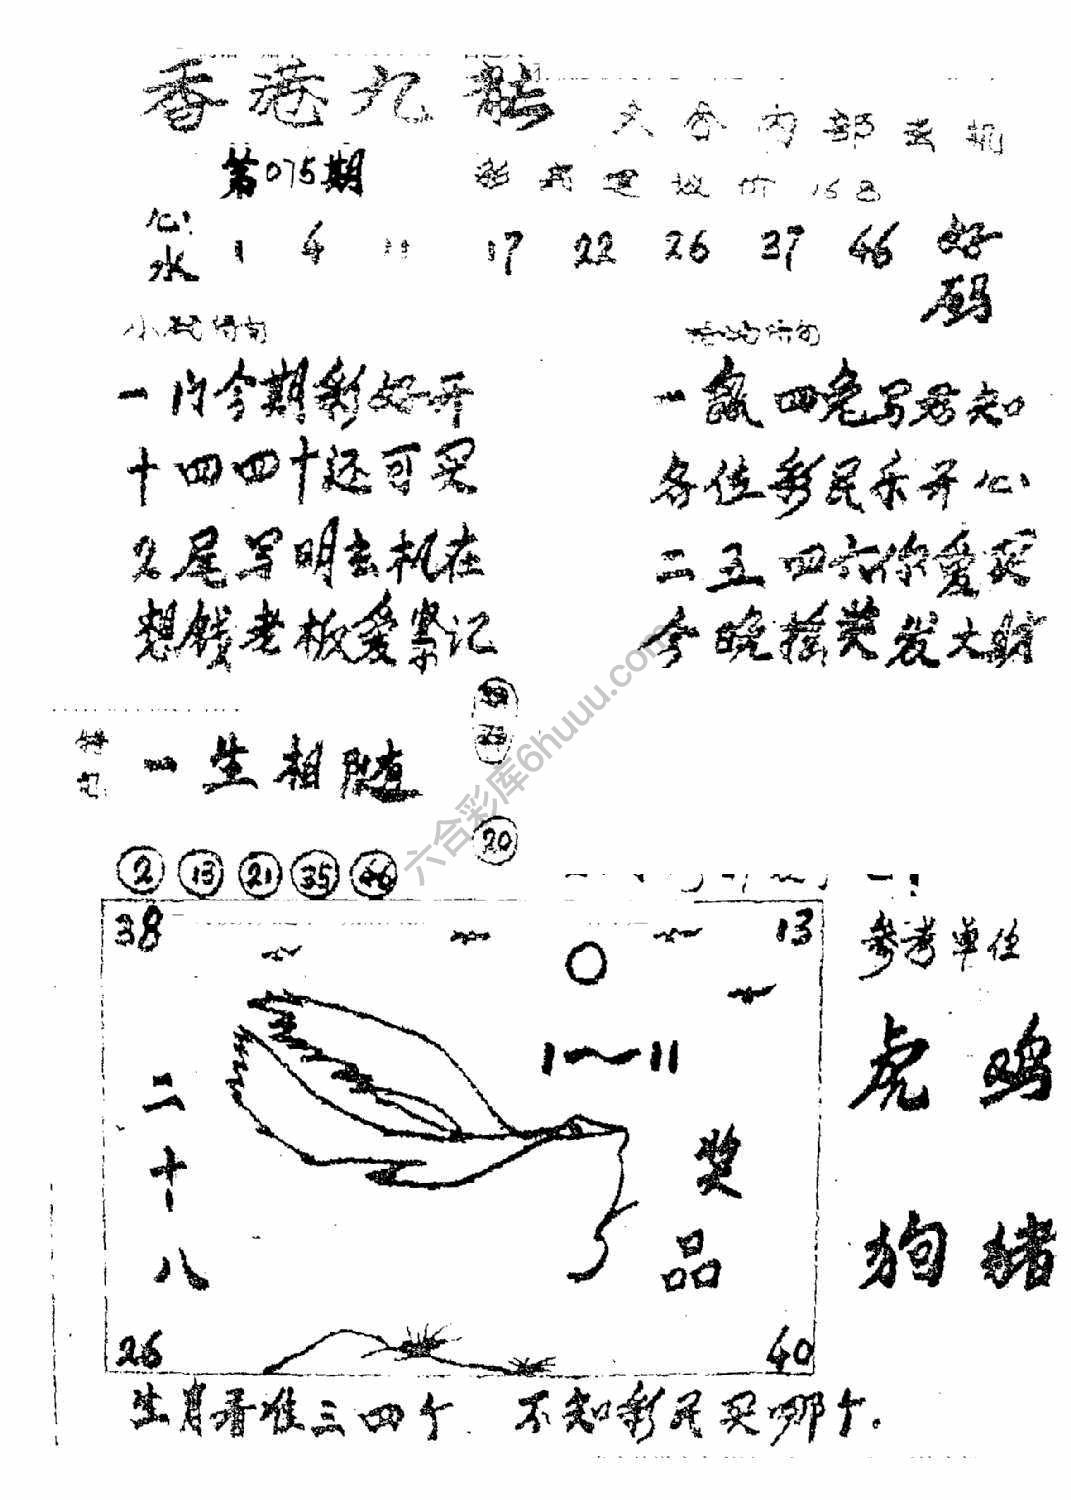 香港九龙 六合内部玄机
第075期
心水 1 4 11 17 22 26 37 46 好码
一肖今期彩好开
十四四十还可买
2尾写明玄机在
想钱老板爱紧记
一 四兔写君知
各位彩民乐开心
二五四六你爱买
今晚搖奖发大财
一生相随
20
2 13 21 35 46
38 13
参考单位
1～11
二十八
奖品
虎 鸡
狗 猪
26 40
生肖看准三四个 不知彩民买哪个.
六合彩库6huuu.com